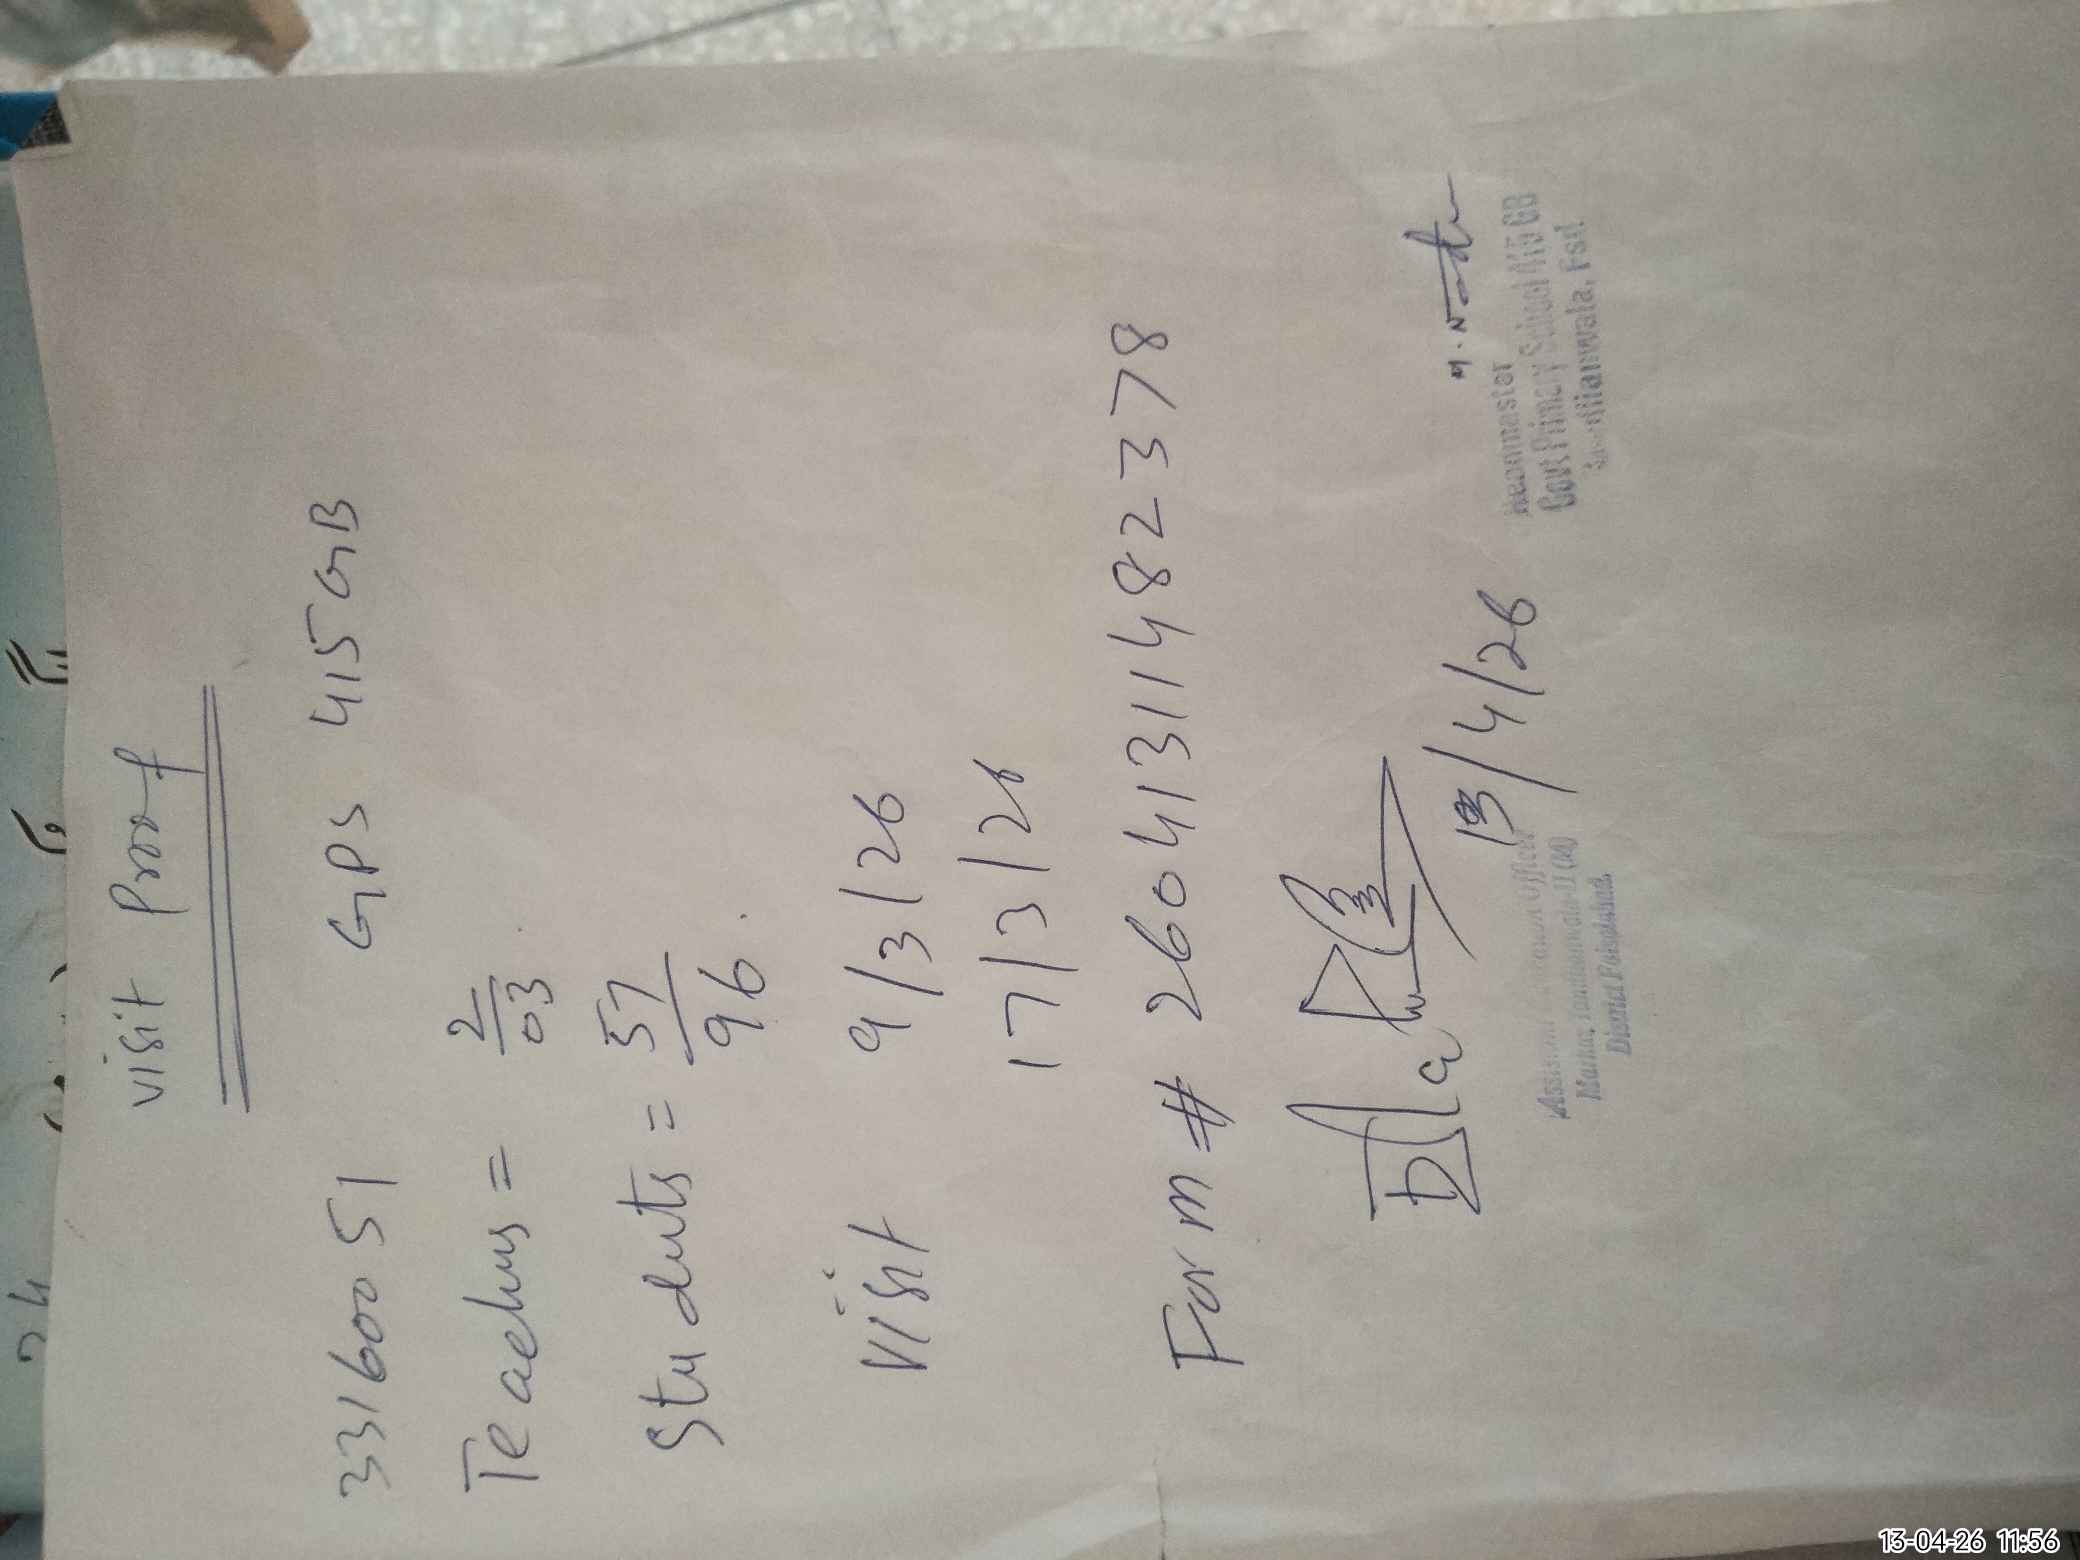 visit Proof
33160051 GPS 415 GB
Teachers = 2/03
Students = 57/96
visit 9/3/26
17/3/26
Form # 2604131148 2378
13/4/26
M. N
Headmaster
Govt Primary School 415 GB
Tandlianwala, Fsd.
Assistant Education Officer
Markaz, Tandlianwala-II (M)
District Faisalabad.
13-04-26 11:56